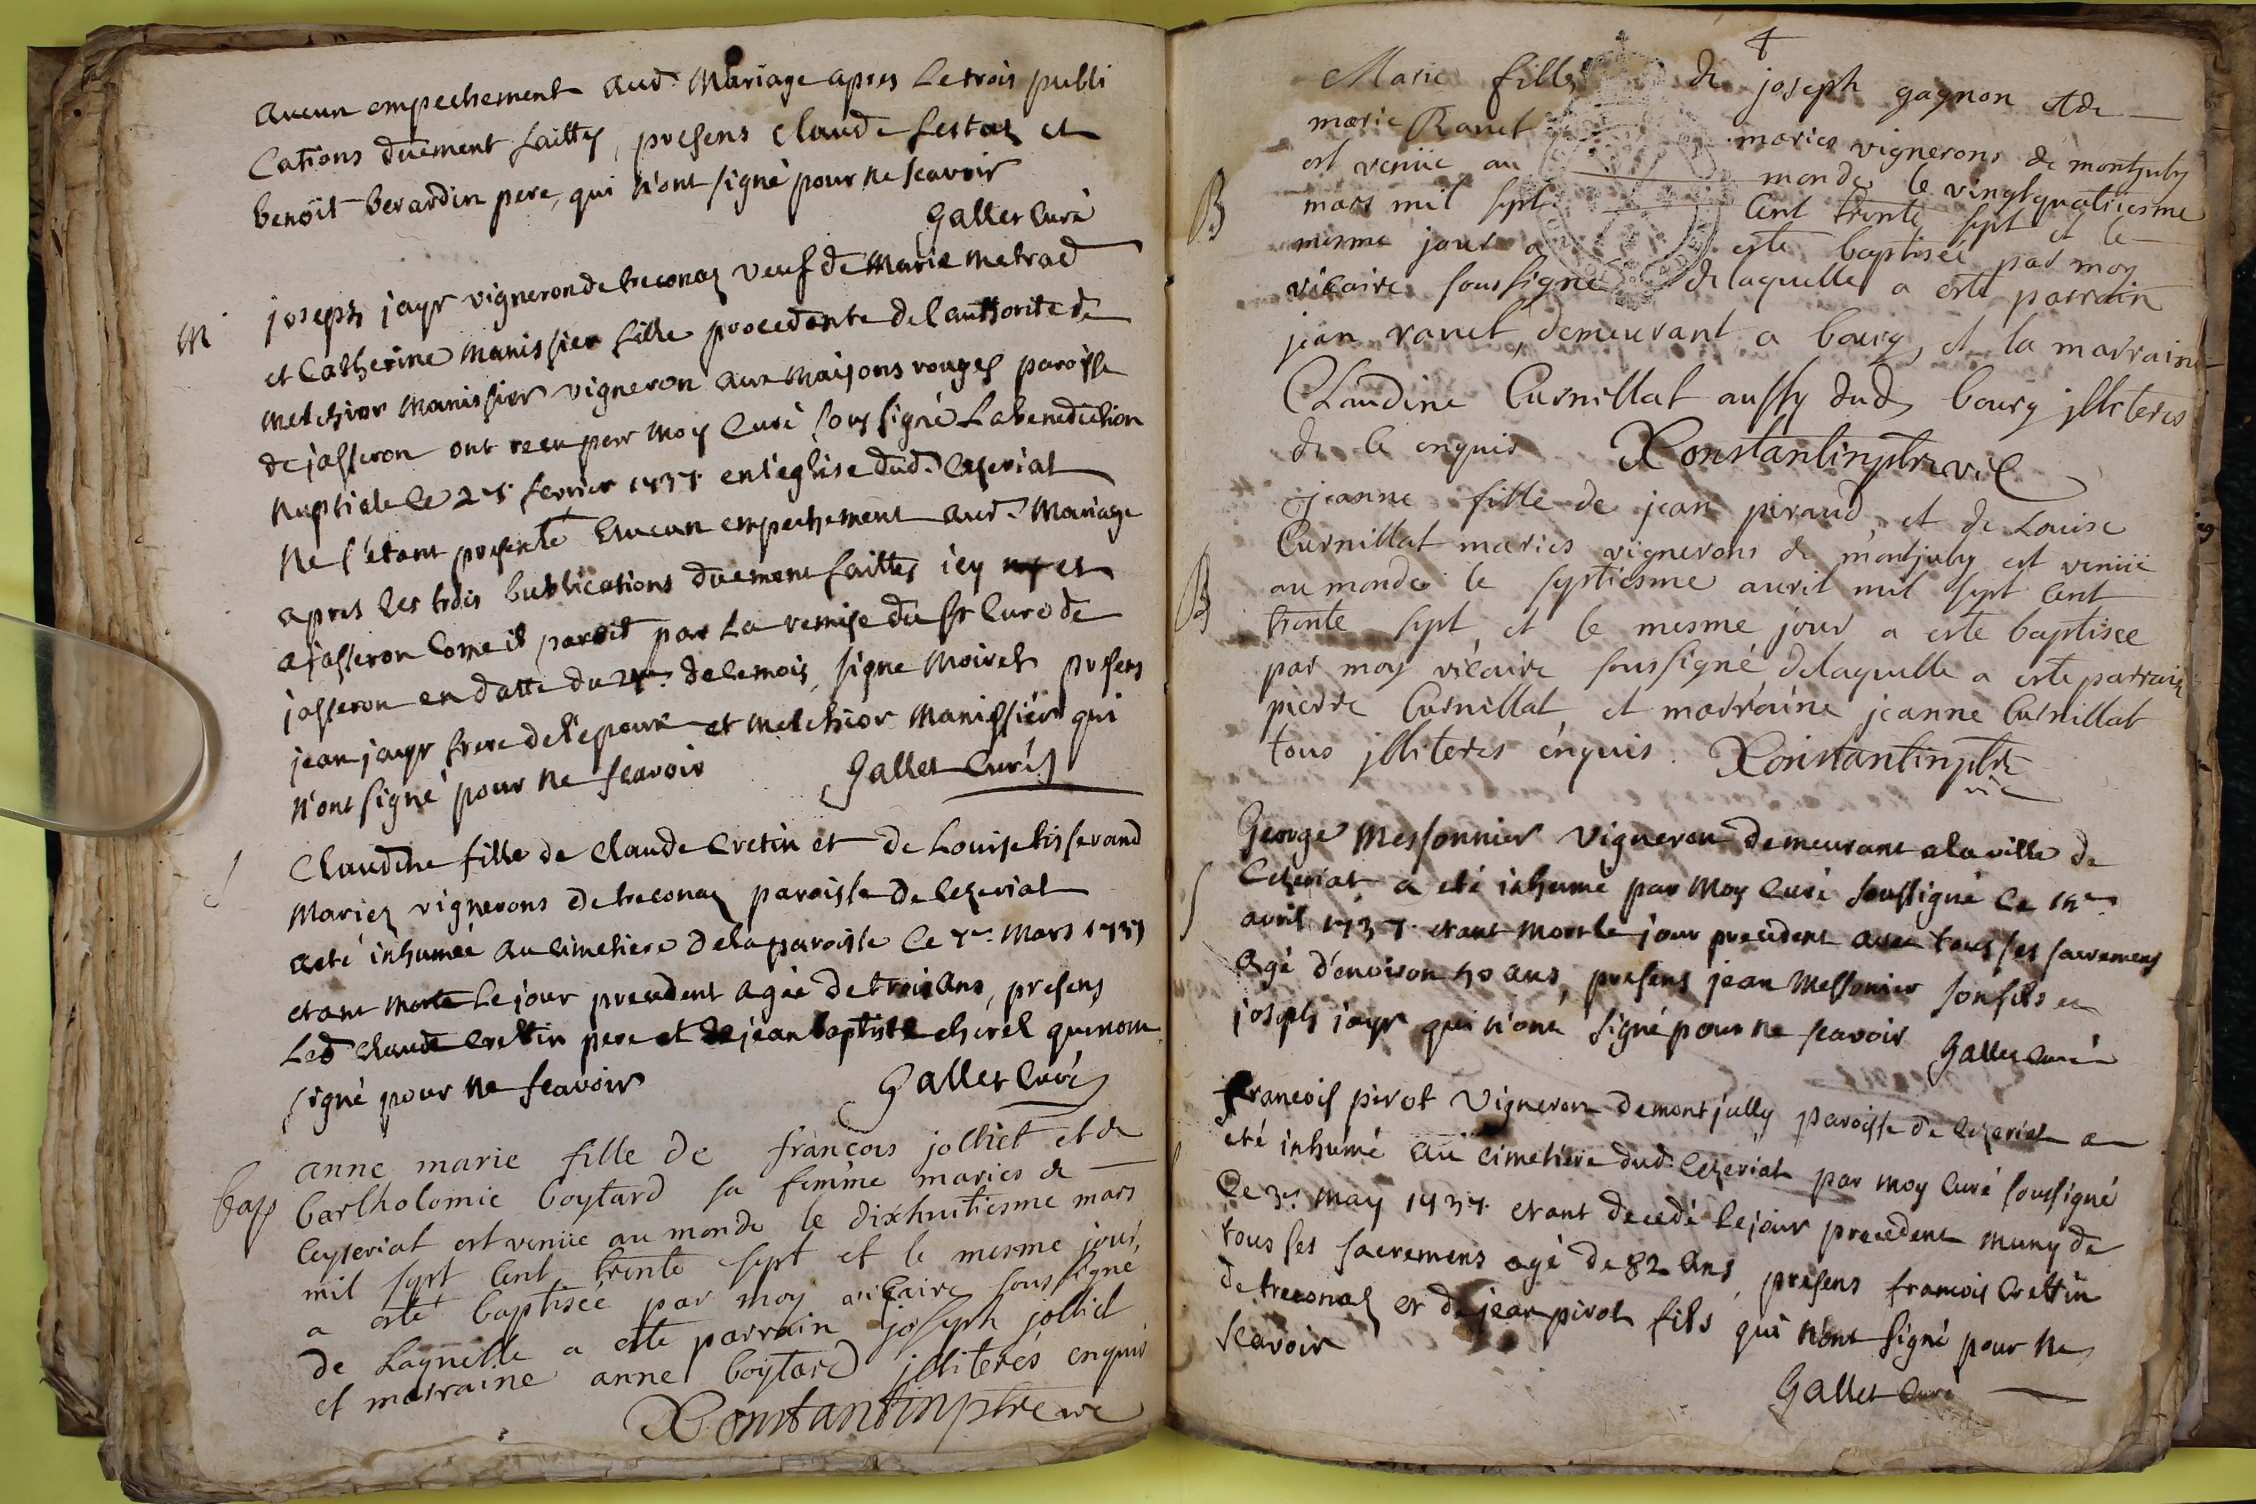 aucun empechement aud. Mariage apres Le trois publi
cations duement faittes, presens Claude festaz et
benoit berardin pere, qui n'ont signé pour ne scavoir
Gallet Curé
M
joseph jayr vigneron de treconaz veuf de Marie Metrad
et Catherine Manissier fille procedante de l'authorite de
Melchior Manissier vigneron aux Maisons rouges paroisse
de jasseron ont recu par Moy Curé soussigné La benediction
Nuptiale le fevrier 1737 en l'eglise dud. Ceseriat
Ne s'etant presenté Aucun empechement aud. Mariage
apres les trois bublications duement faittes icy et
a jasseron Come il paroit par La remise du Sr Curé de
jasseron en datte du de ce mois, signe Moiret presens
jean jayr frere de l'epoux et Melchior Manissier qui
N'ont signé pour ne scavoir Gallet Curé
Claudine fille de Claude Cretin et de Louise tisserand
Mariez vignerons de treconaz paroisse de Ceseriat
a eté inhumée au cimetiere de la paroisse le Mars 1737
etant Morte Le jour precedent agée de trois ans, presens
Led. Claude Crettin pere et de jean baptiste chirel qui n'ont
signé pour ne scavoir Gallet Curé
bap
anne marie fille de françois jolliet et de
bartholomie boytard sa femme maries de
Ceyseriat est venüe au monde le dixhuitiesme mars
mil sept Cent trente sept et le mesme jour,
a esté baptisée par moy vicaire soussigné
de Laquelle a este parrain joseph jolliet
et marraine anne boytard jlliterés enquis
Constantin ptre vic
4
Marie fille de joseph gagnon et de
marie Ranet maries vignerons de montjuly
B
est venüe au monde le vingtquatriesme
mars mil sept Cent trente sept et le
mesme jour a este baptisée par moy
vicaire soussigné de laquelle a este parrain
jean ranet, demeurant a bourg, et la marraine
Claudine Curnillat aussy dud. bourg jlliteres
de ce enquis Constantin ptre vic
jeanne fille de jean peraud, et de Louise
Curnillat maries vignerons de montjuly est venüe
B
au monde le septiesme avril mil sept Cent
trente sept, et le mesme jour a este baptisee
par moy vicaire soussigné de laquelle a este parrain
pierre Curnillat, et marraine jeanne Curnillat
tous jlliteres enquis. Constantin ptre
vic
George Messonnier vigneron demeurant a la ville de
S
Ceseriat a eté inhumé par Moy Curé soussigné le
avril 1737 etant Mort le jour precedent avec tous ses sacremens
Agé d'environ ans, presens jean Messonier son fils et
joseph jayr qui n'ont signé pour ne scavoir Gallet Curé
francois pirot Vigneron de montjully paroisse de Ceseriat a
eté inhumé au cimetiere dud. Ceseriat par moy Curé soussigné
Le 3e May 1737 etant decedé le jour precedent muny de
tous ses sacremens agé de 82 ans, presens francois Crettin
de treconaz et de jean pirot fils qui n'ont signé pour ne
scavoir
Gallet Curé